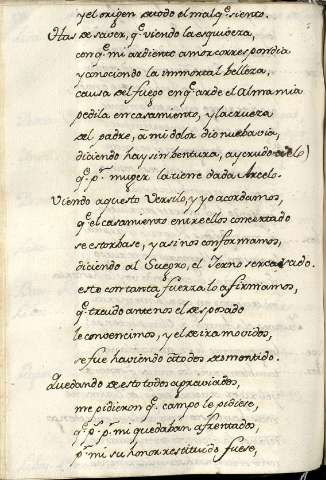 y el origen de todo el mal q̃ siento.
Has de saver, q̃ viendo la esquiveza,
con q̃ mi ardiente amor correspondia
y conociendo la inmortal belleza,
causa del fuego en q̃ arde el Alma mia
pedila en casamiento, y la crueza
del padre, à mi dolor dio nueba via,
diciendo hay sin bentura, ay crudo cielo)
q̃ pʳ muger la tiene dada Arcelo.
Viendo aquesto Versilo, y yo acordamos,
q̃ el casamiento entre ellos concertado
se estorbase, y asi nos conformamos,
diciendo al Suegro, el Yerno ser casado.
esto con tanta fuerza lo afirmamos,
q̃ traido ante nos el desposado
le convencimos, y el de ira movidos,
se fue haviendo à todos desmentido.
Quedando de esto todos agraviados,
me pidieron q̃ campo le pidiese,
q̃ pˢ pʳ mi quedaban afrentados,
pʳ mi su honor restituido fuese,